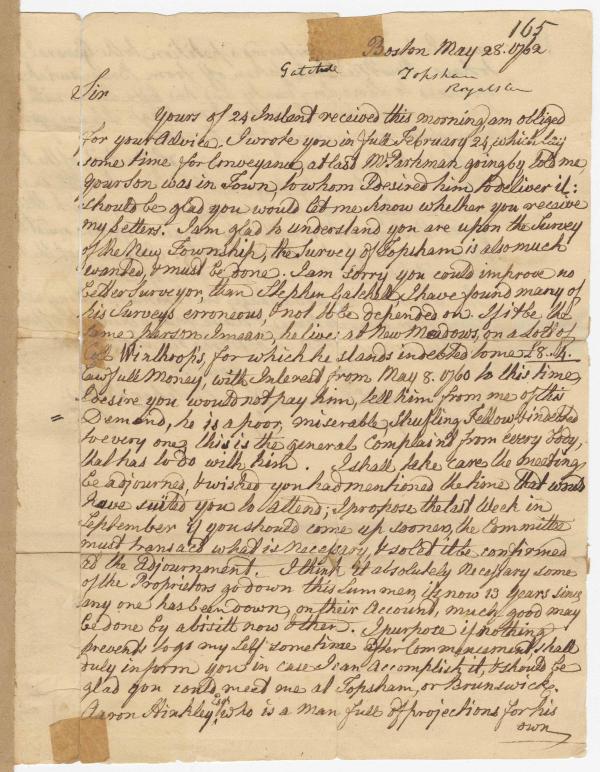 165
Boston May 28. 1762
Gatchele Topsham
Royalston
Sir
Yours of 24 Instant received this morning, am obliged
for your Advice. I wrote you in full February 24, which lay
some time for Conveyance, at last Mr. Portman going by told me,
your son was in Town, to whom I desired him to deliver it:
should be glad you would let me know whether you receive
my Letters. I am glad to understand you are upon the Survey
of the New Township, the Survey of Topsham is also much
wanted, & must be done. I am sorry you could improve no
better Surveyor, than Stephen Gatchell, I have found many of
his Surveys erroneous, & not to be depended on. If it be the
same person I mean, he lives at New Meadows, on a Lott of
Coll Winthrops, for which he stands indebted to me £8..4..
Lawfull Money, with Interest from May 8. 1760 to this time,
I desire you would not pay him, tell him from me of this
Demand, he is a poor, miserable, shufling Fellow & indebted
to every one, this is the general Complaint from every body,
that has to do with him. I shall take care the meeting
be adjourned, & wished you had mentioned the time that would
have suited you to attend; I propose the last Week in
September if you should come up sooner, the Committee
must transact what is Necessary, & so let it be confirmed
at the Adjournment. I think it absolutely Necessary some
of the Proprietors go down this Summer, it is now 13 Years since
any one has been down, on their Account, much good may
be done by a visitt now & then. I purpose if nothing
prevents to go my Self sometime after Commencement, shall
duly inform you in case I can Accomplish it, & should be
glad you could meet me at Topsham, or Brunswick.
Aaron Hinkley Esqr. who is a man full of projections for his
own